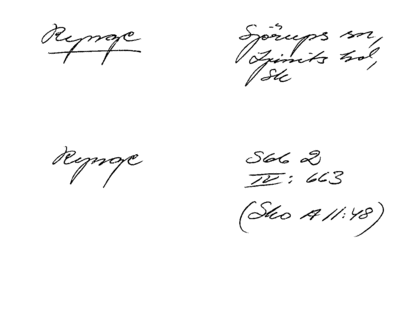 Rynge
Sjörups sn,
Ljunits hd,
Sk
Rynge
Sbb 2
IV: 663
(Sko A 11:48)